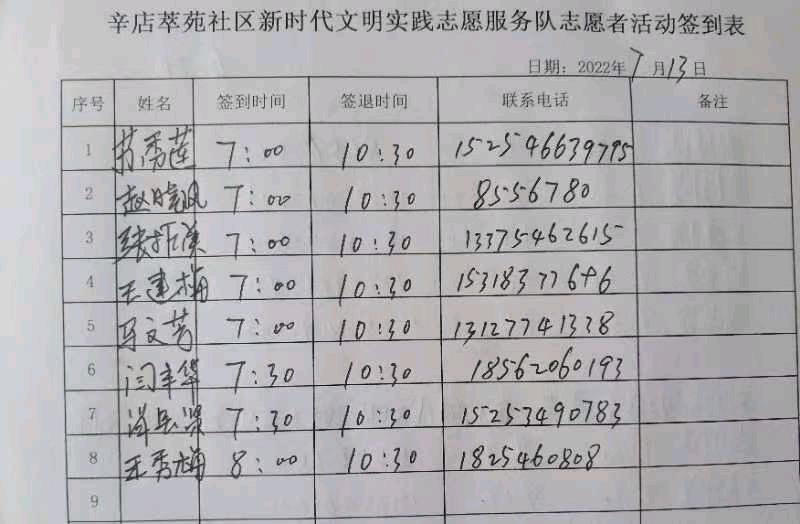 辛店萃苑社区新时代文明实践志愿服务队志愿者活动签到表
日期：2022年7月13日
序号 姓名 签到时间 签退时间 联系电话 备注
1 苏秀莲 7:00 10:30 152546639795
2 赵晓凤 7:00 10:30 8556780
3 7:00 10:30 13375462615
4 王建梅 7:00 10:30
5 马文芳 7:00 10:30 13127741338
6 闫丰华 7:30 10:30 18562060193
7 7:30 10:30 15253490783
8 王秀梅 8:00 10:30 1825460808
9